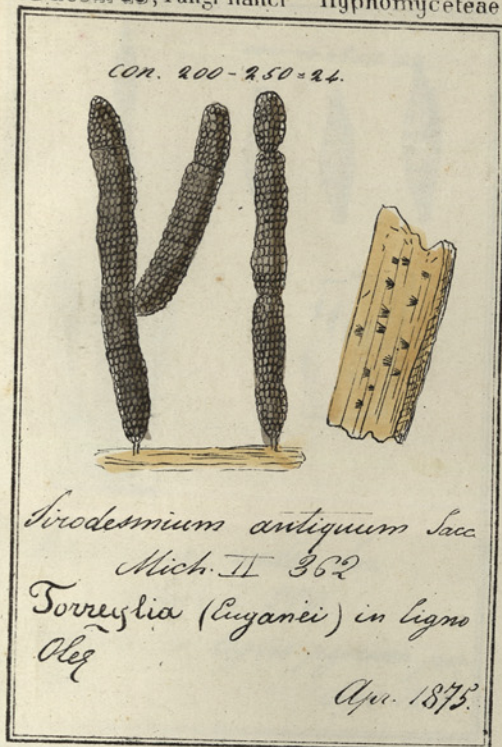 Fungi italici Hyphomyceteae
con. 200-250=24.
Sirodesmium antiquum Sacc
Mich. II 362
Torreglia (Euganei) in ligno
Oleę
Apr. 1875.